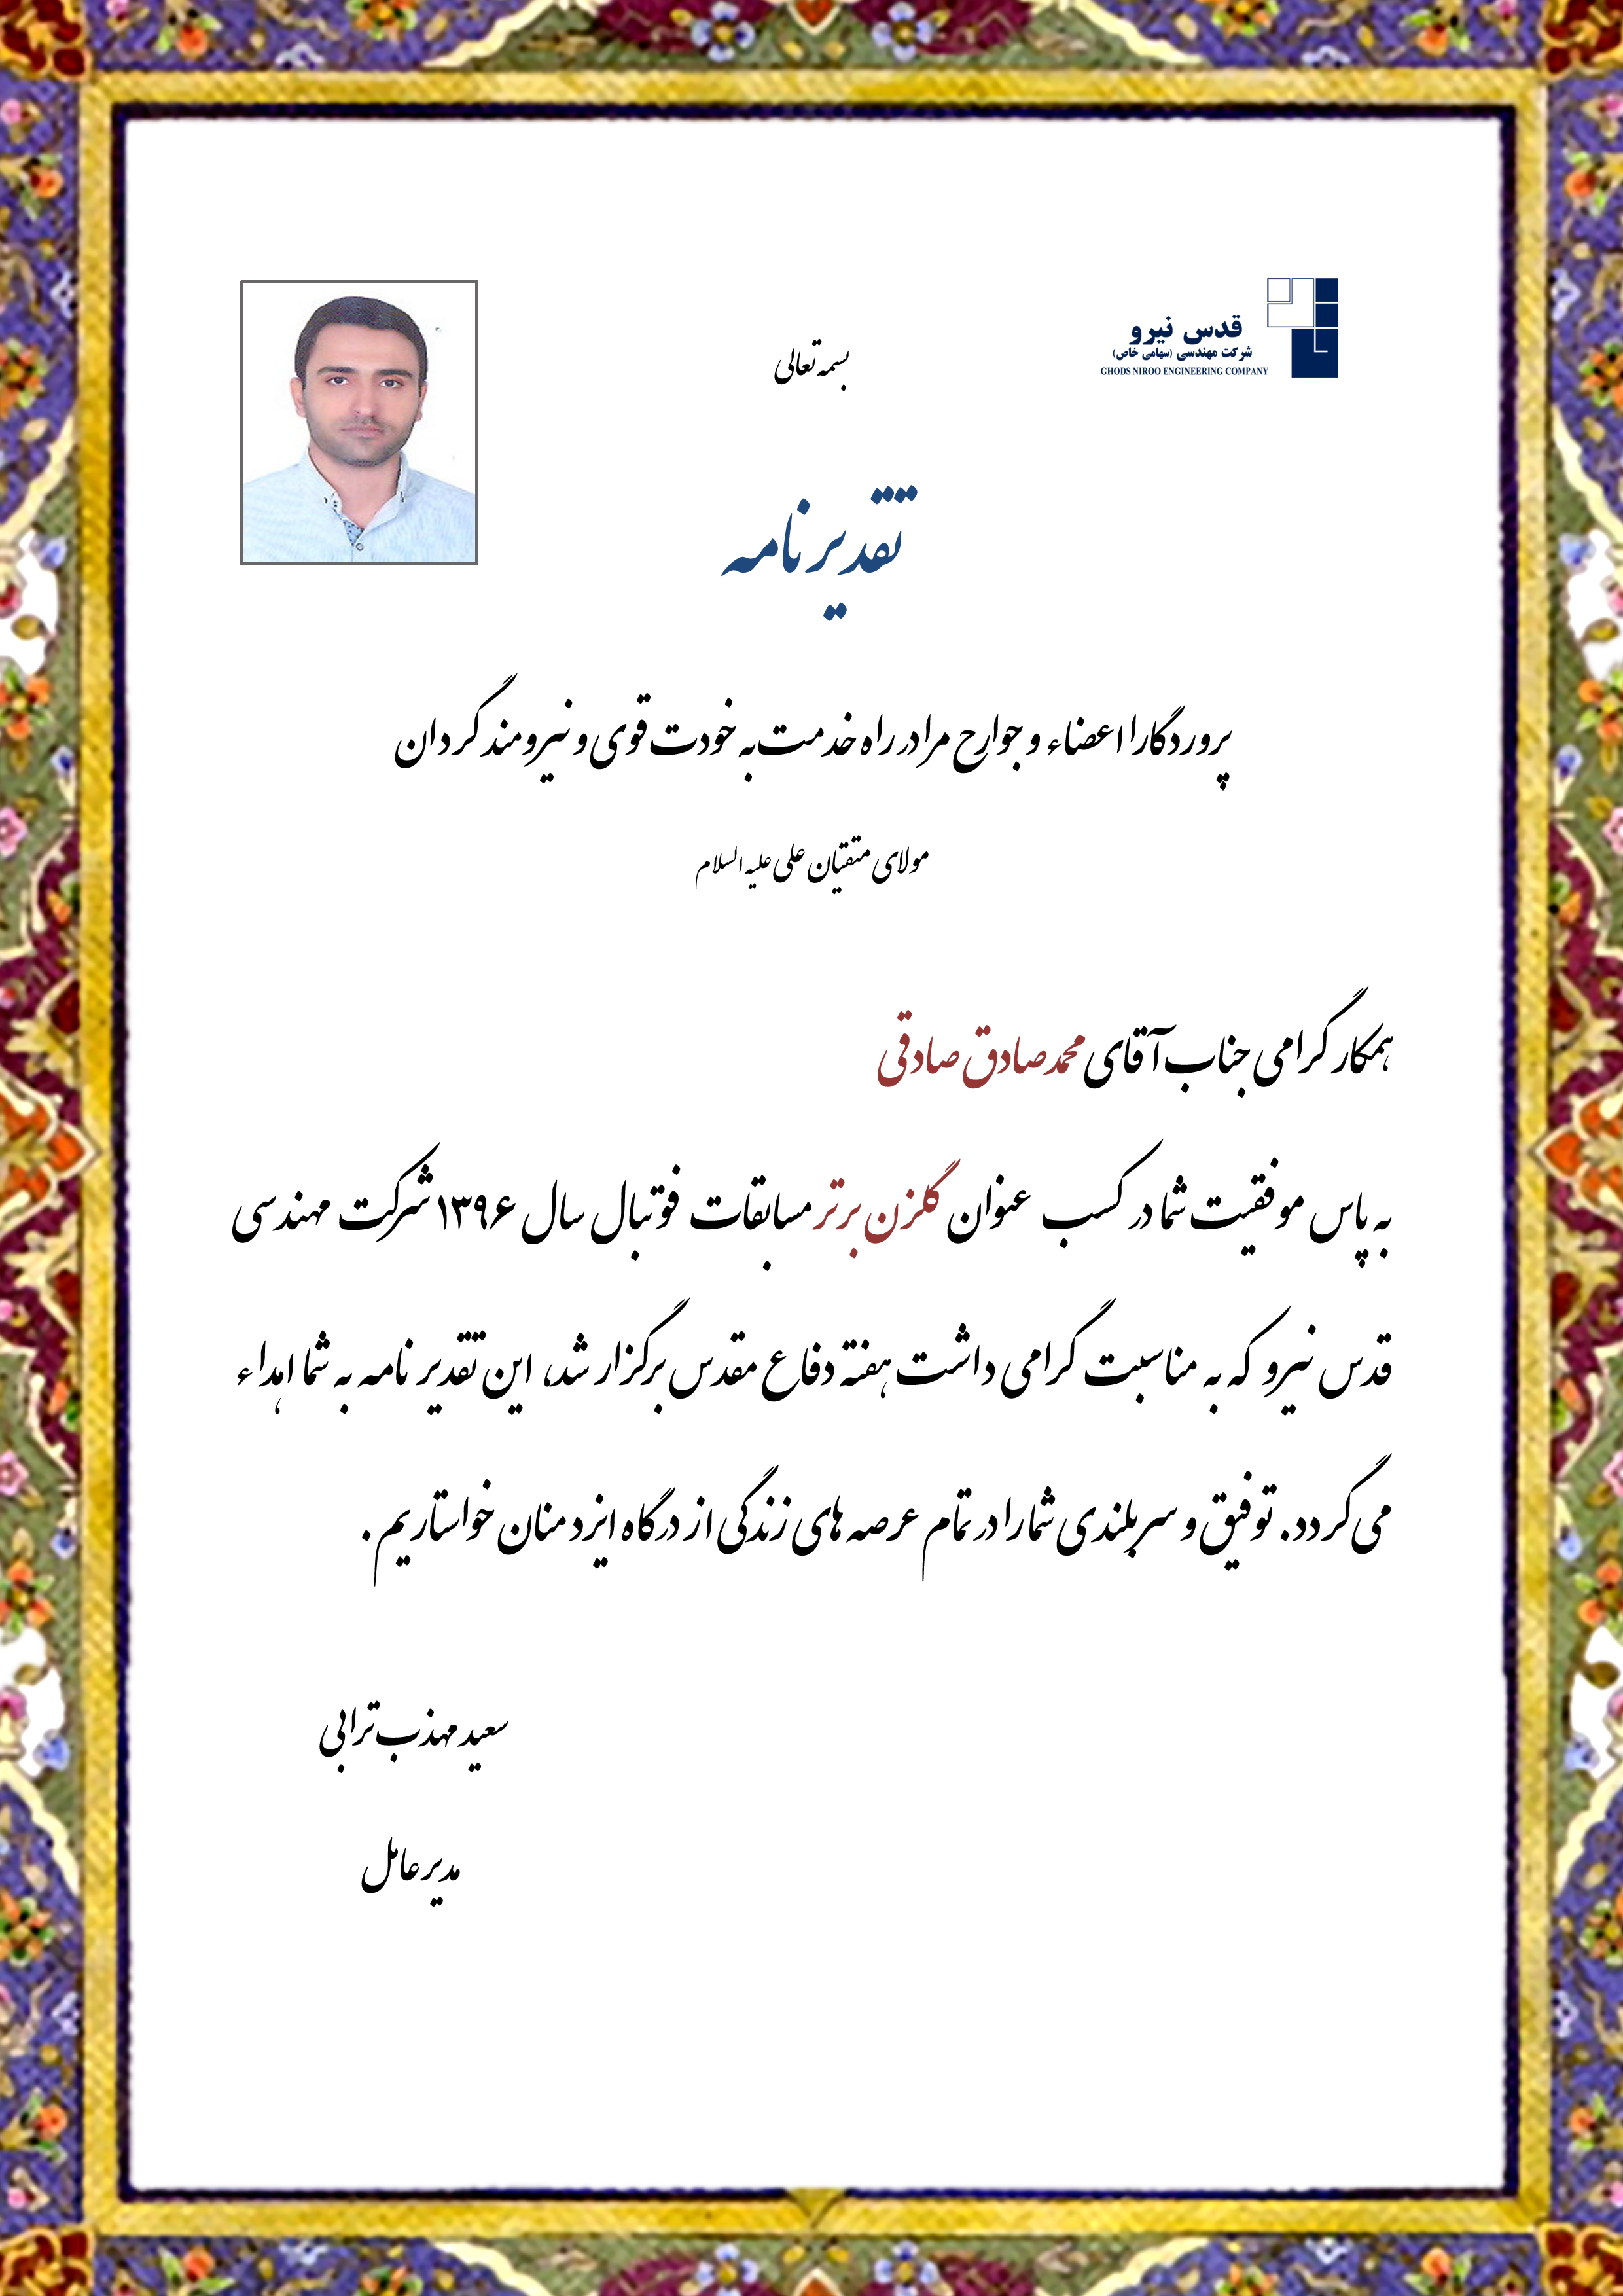 قدس نیرو
شرکت مهندسی (سهامی خاص)
GHODS NIROO ENGINEERING COMPANY
بسمه تعالی
تقدیر نامه
پروردگارا اعضاء و جوارح مرا در راه خدمت به خودت قوی و نیرومند گردان
مولای متقیان علی علیه السلام
همکار گرامی جناب آقای محمدصادق صادقی
به پاس موفقیت شما در کسب عنوان گلزن برتر مسابقات فوتبال سال ۱۳۹۶ شرکت مهندسی
قدس نیرو که به مناسبت گرامی داشت هفته دفاع مقدس برگزار شد، این تقدیر نامه به شما اهداء
می گردد. توفیق و سربلندی شما را در تمام عرصه های زندگی از درگاه ایزد منان خواستاریم.
سعید مهذب ترابی
مدیر عامل